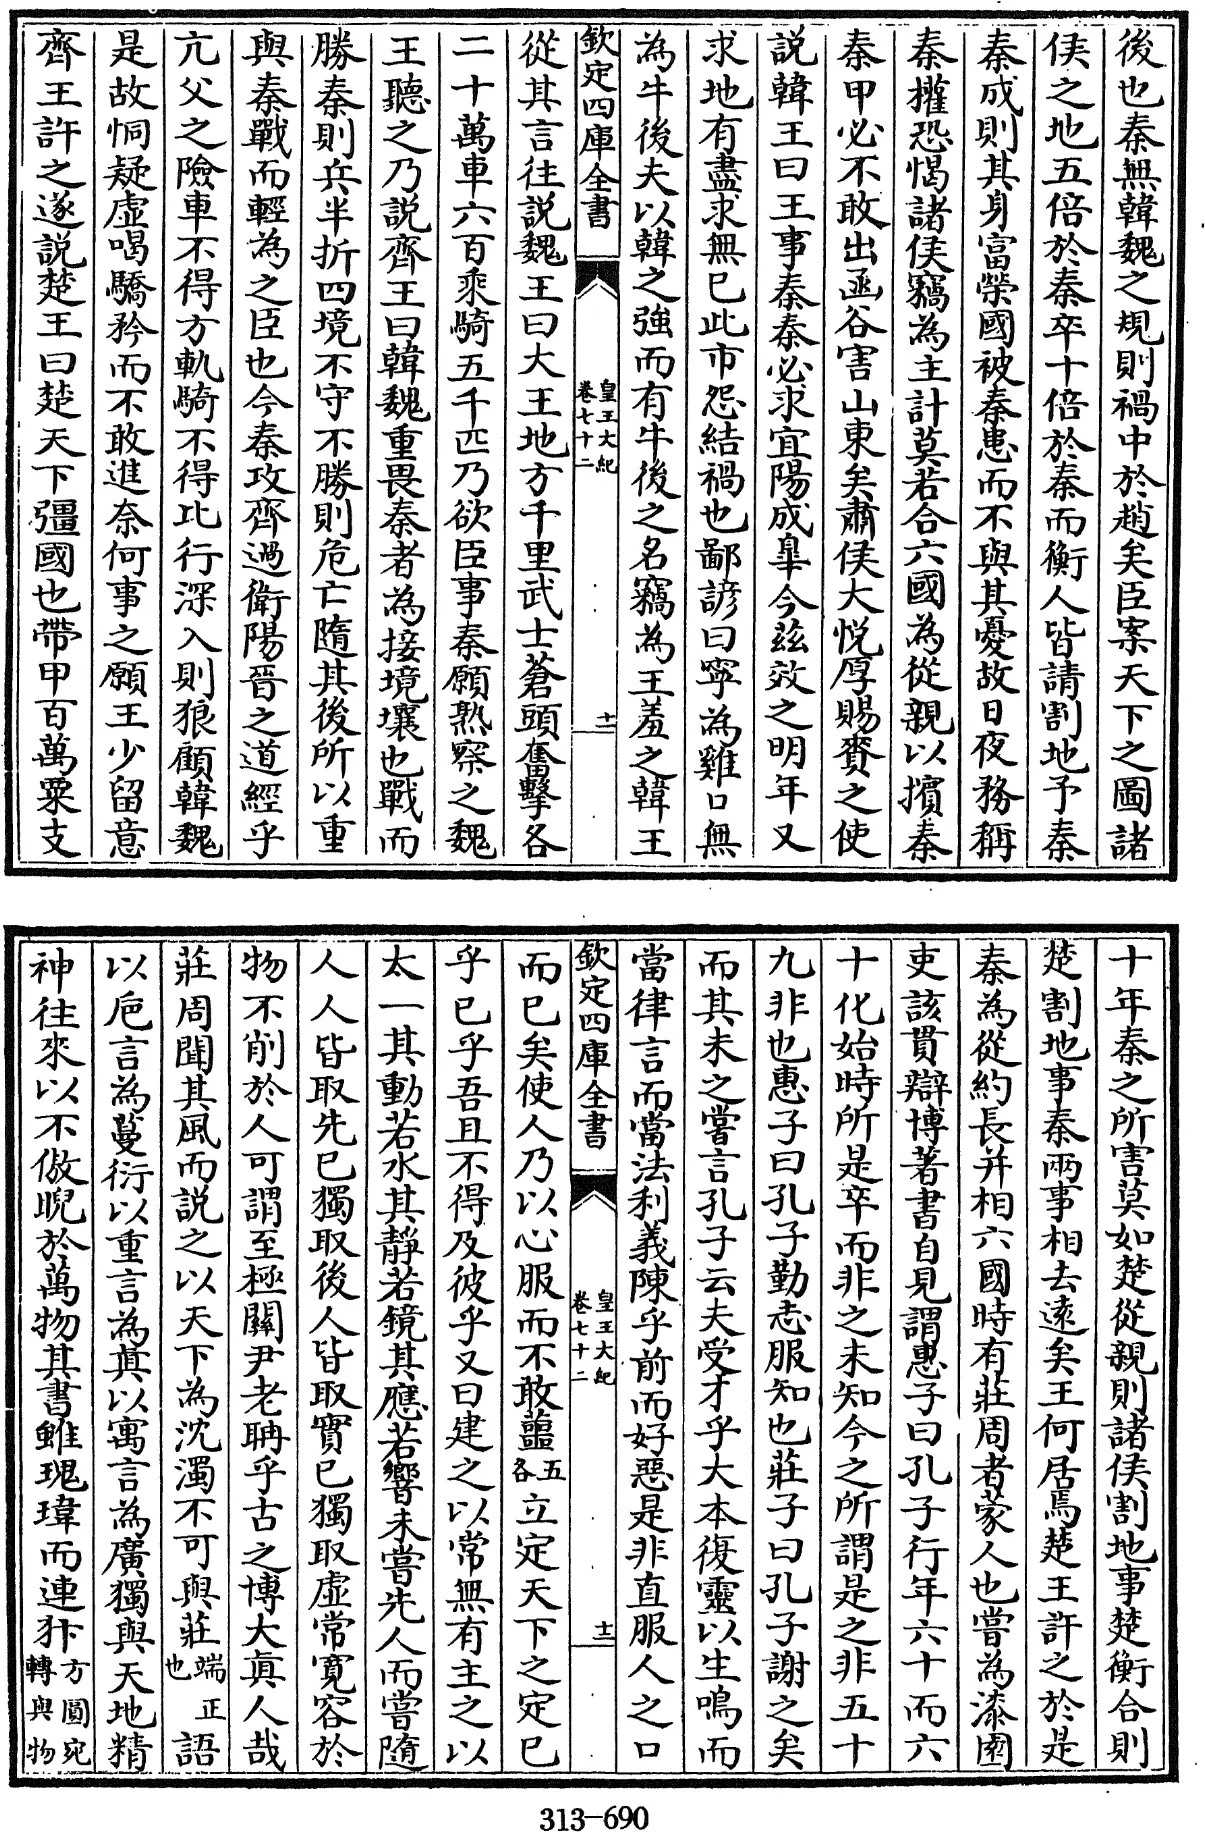 後也秦無韓魏之規則禍中於趙矣臣案天下之圖諸
侯之地五倍於秦卒十倍於秦而衡人皆請割地予秦
秦成則其身富榮國被秦患而不與其憂故日夜務稱
秦權恐愒諸侯竊為主計莫若合六國為從親以擯秦
秦甲必不敢出函谷害山東矣肅侯大悅厚賜賚之使
説韓王曰王事秦秦必求宜陽成臯今兹效之明年又
求地有盡求無已此市怨結禍也鄙諺曰寜為雞口無
為牛後夫以韓之強而有牛後之名竊為王羞之韓王
欽定四庫全書
皇王大紀
卷七十二
十一
從其言往説魏王曰大王地方千里武士蒼頭奮擊各
二十萬車六百乘騎五千匹乃欲臣事秦願熟察之魏
王聽之乃説齊王曰韓魏重畏秦者為接境壤也戰而
勝秦則兵半折四境不守不勝則危亡隨其後所以重
與秦戰而輕為之臣也今秦攻齊過衛陽晉之道經乎
亢父之險車不得方軌騎不得比行深入則狼顧韓魏
是故恫疑虛喝驕矜而不敢進奈何事之願王少留意
齊王許之遂説楚王曰楚天下彊國也帶甲百萬粟支
十年秦之所害莫如楚從親則諸侯割地事楚衡合則
楚割地事秦兩事相去遠矣王何居焉楚王許之於是
秦為從約長并相六國時有莊周者蒙人也嘗為漆園
吏該貫辯博著書自見謂惠子曰孔子行年六十而六
十化始時所是卒而非之未知今之所謂是之非五十
九非也惠子曰孔子勤志服知也莊子曰孔子謝之矣
而其未之嘗言孔子云夫受才乎大本復靈以生鳴而
當律言而當法利義陳乎前而好惡是非直服人之口
欽定四庫全書
皇王大紀
卷七十二
十二
而已矣使人乃以心服而不敢蘁五各立定天下之定已
乎已乎吾且不得及彼乎又曰建之以常無有主之以
太一其動若水其靜若鏡其應若響未嘗先人而嘗隨
人人皆取先已獨取後人皆取實已獨取虛常寬容於
物不削於人可謂至極關尹老聃乎古之博大眞人哉
莊周聞其風而説之以天下為沈濁不可與莊端正也語
以巵言為蔓衍以重言為眞以寓言為廣獨與天地精
神往來以不傲睨於萬物其書雖瑰瑋而連犿方圓宛轉與物
313-690